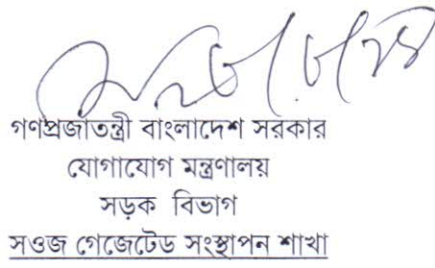 গণপ্রজাতন্ত্রী বাংলাদেশ সরকার
যোগাযোগ মন্ত্রণালয়
সড়ক বিভাগ
সওজ গেজেটেড সংস্থাপন শাখা